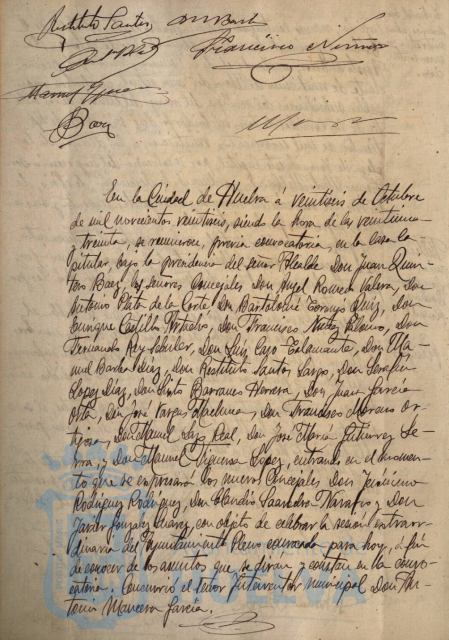 Restituto Santos
Francisco Núñez
Manuel Figuer
Baez
En la Ciudad de Huelva á veintiseis de Octubre
de mil novecientos veintiseis, siendo la hora de las veintiuna
y treinta, se reunieron, previa convocatoria, en la Casa Ca-
pitular, bajo la presidencia del señor Alcalde Don Juan Quin-
tero Baez, los señores Concejales Don Angel Romero Valera, Don
Antonio Plata de la Corte, Don Bartolomé Ruiz, Don
Enrique Don Francisco Núñez Don
Fernando Rey Don Luis Cazo Don Ma-
nuel Barba Diaz, Don Restituto Santos Don Serafin
Lopez Diaz, Don Barranco Herrera, Don Juan Garcia
Orta, Don José Vargas Machuca, Don Francisco Moreno Or-
Don Manuel Real, Don José Maria Gutierrez Se-
rra, y Don Manuel Figueroa Lopez, entrando en el momen-
to que se expresará los nuevos Concejales Don Jerónimo
Rodriguez Rodriguez, Don Claudio Saavedra Navarro y Don
Javier Gonzalez Suarez, con objeto de celebrar la sesión extraor-
dinaria del Ayuntamiento Pleno convocada para hoy, á fin
de conocer de los asuntos que se dirán y constan en la convo-
catoria. Concurrió el señor Interventor municipal Don An-
tonio Mancera Garcia.